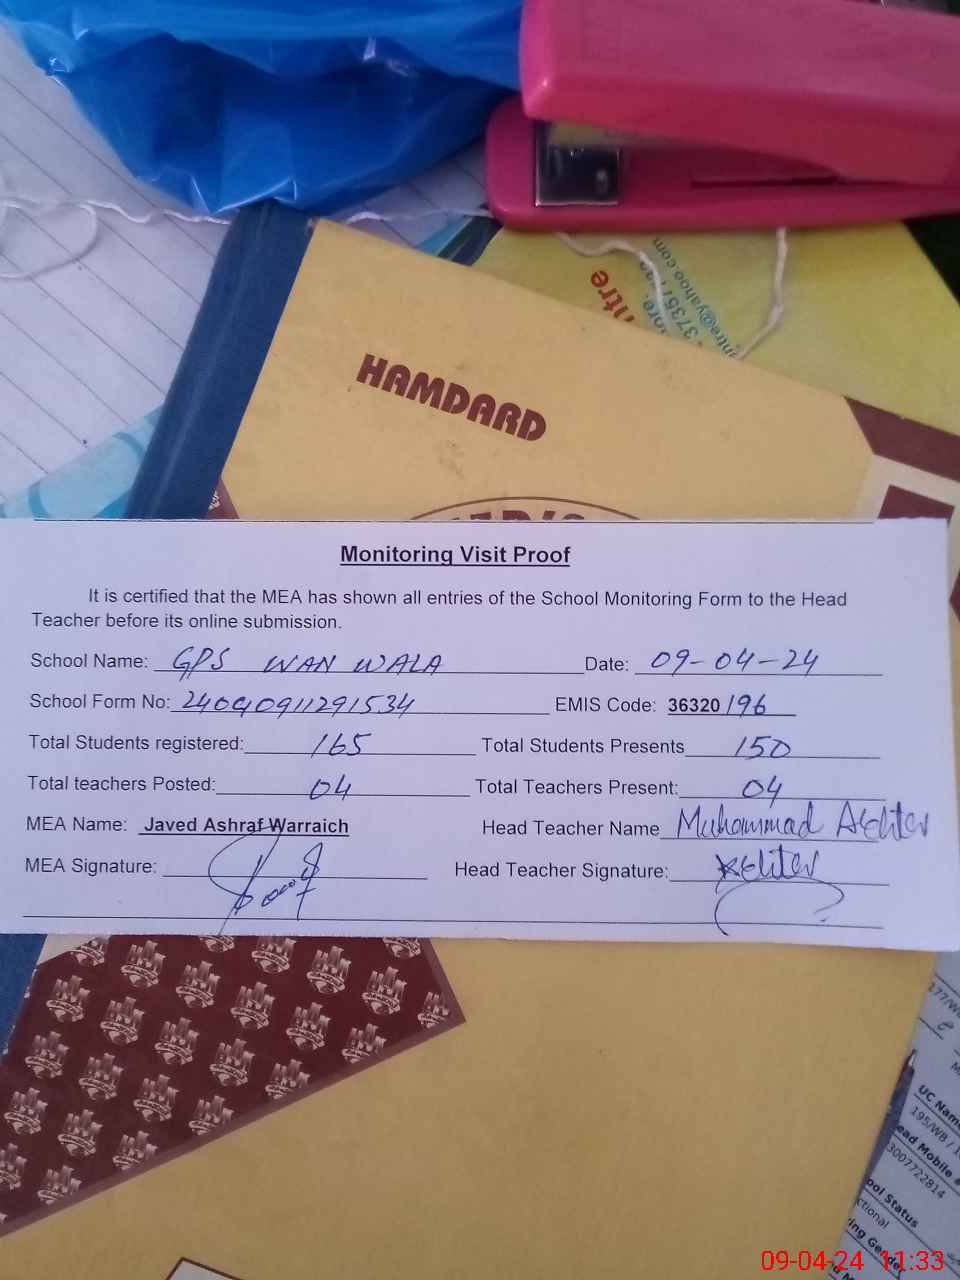 ntre
ore.
ntre@yahoo.com
HAMDARD
Monitoring Visit Proof
It is certified that the MEA has shown all entries of the School Monitoring Form to the Head
Teacher before its online submission.
School Name: GPS WAN WALA Date: 09-04-24
School Form No: 24040911291534 EMIS Code: 36320196
Total Students registered: 165 Total Students Presents 150
Total teachers Posted: 04 Total Teachers Present: 04
MEA Name: Javed Ashraf Warraich Head Teacher Name Muhammad Akhter
MEA Signature: Head Teacher Signature: Akhter
177/W
UC Nam
195/WB /
ead Mobile #
3007722814
ool Status
ctional
ing Gender
09-04-24 11:33